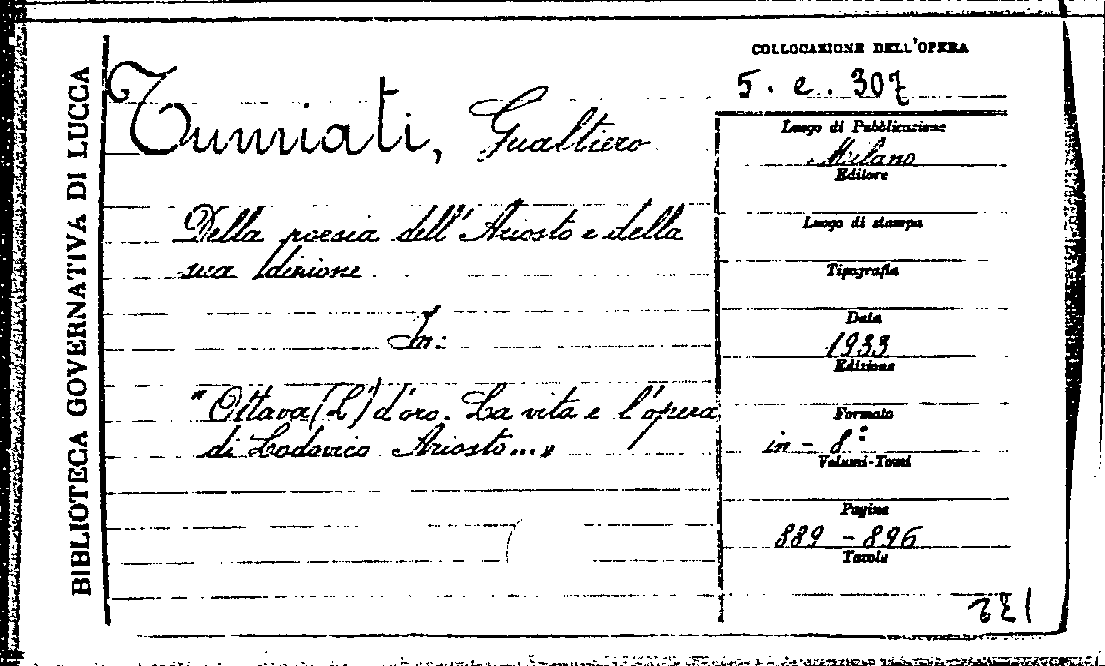 BIBLIOTECA GOVERNATIVA DI LUCCA
Tumiati, Gualtiero
Della poesia dell'Ariosto e della
sua dizione
In:
"Ottava (L') d'oro. La vita e l'opera
di Lodovico Ariosto..."
COLLOCAZIONE DELL'OPERA
5. e. 307
Luogo di Pubblicazione
Milano
Editore
Luogo di stampa
Tipografia
Data
1933
Edizione
Formato
in-8°
Volumi-Tomi
Pagine
889-896
Tavole